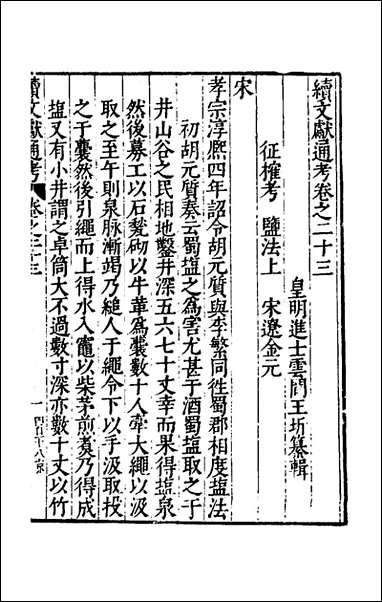 續文獻通考卷之二十三
皇明進士雲間王圻纂輯
征榷考　鹽法上　宋遼金元
宋
孝宗淳熙四年詔令胡元質與李繁同往蜀郡相度塩法
初胡元質奏云蜀塩之為害尤甚于酒蜀塩取之于
井山谷之民相地鑿井深五六七十丈幸而果得塩泉
然後募工以石甃砌以牛革為囊數十人牽大繩以汲
取之至午則泉脉漸竭乃縋人于繩令下以手汲取投
之于囊然後引繩而上得水入竈以柴茅煎𤋎乃得成
塩又有小井謂之卓筒大不過數寸深亦數十丈以竹
續文獻通考
卷之二十三
一